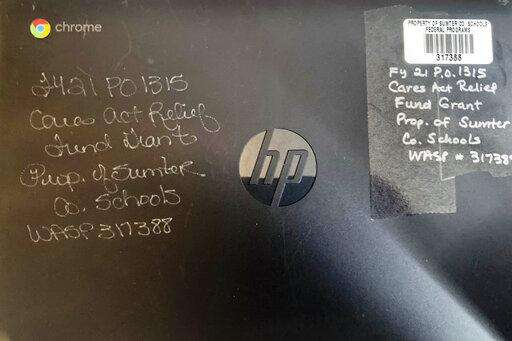 chrome
FY 21 PO 1315
Cares Act Relief
Fund Grant
Prop. of Sumter
Co. Schools
WASP 317388
hp
PROPERTY OF SUMTER CO. SCHOOLS
FEDERAL PROGRAMS
317388
Fy 21 P.O. 1315
Cares Act Relief
Fund Grant
Prop. of Sumter
Co. Schools
WASP # 317388